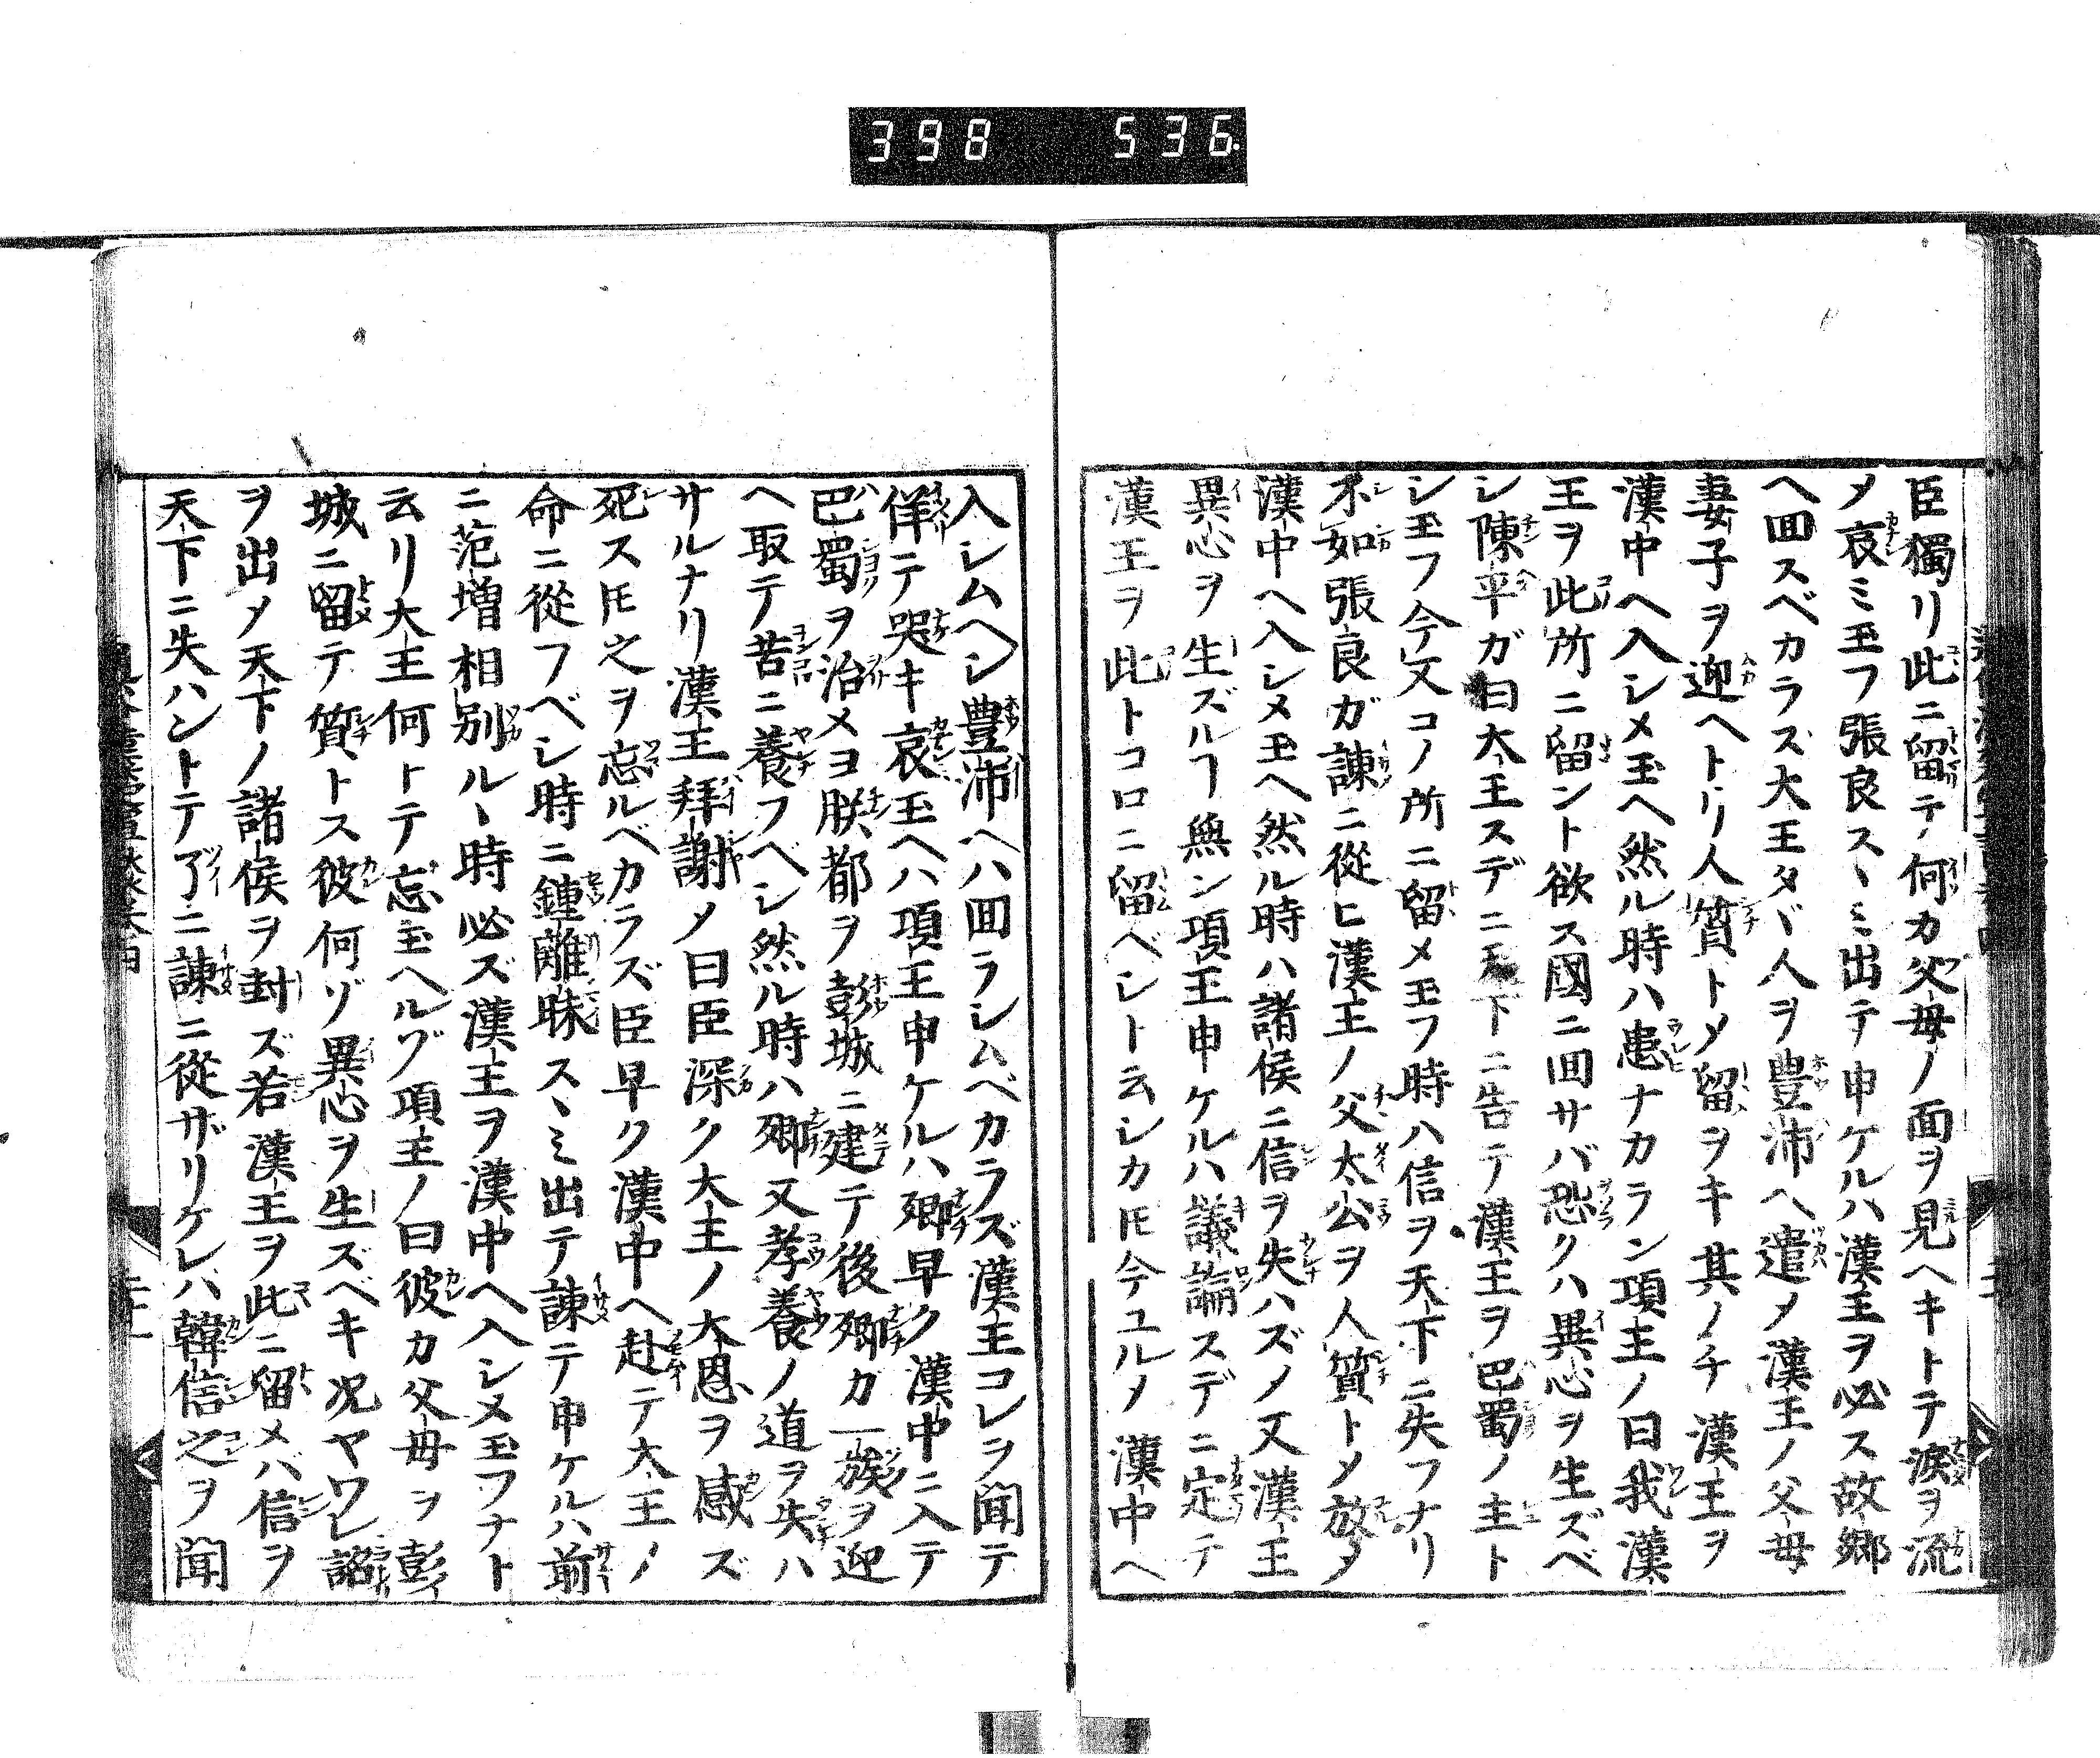 398 536
臣獨リ此ニ留テ何カ父母ノ面ヲ見ヘキトテ淚ヲ流
メ哀ミ玉フ張良スヽミ出テ申ケルハ漢王ヲ必ス故鄉
ヘ囬スベカラズ大王タヾ人ヲ豊沛ヘ遣メ漢王ノ父母
妻子ヲ迎ヘトリ人質トメ留ヲキ其ノチ漢王ヲ
漢中ヘ入シメ玉ヘ然ル時ハ患ナカラン項王ノ曰我漢
王ヲ此所ニ留ント欲ス國ニ囬サバ恐クハ異心ヲ生ズベ
シ陳平ガ曰大王スデニ天下ニ告テ漢王ヲ巴蜀ノ主ト
シ玉フ今又コノ所ニ留メ玉フ時ハ信ヲ天下ニ失フナリ
不如張良ガ諫ニ從ヒ漢王ノ父太公ヲ人質トメ放メ
漢中ヘ入シメ玉ヘ然ル時ハ諸侯ニ信ヲ失ハズノ又漢王
異心ヲ生ズルヿ無ン項王申ケルハ議論スデニ定テ
漢王ヲ此トコロニ留ベシト云シカ𪜈今ユルメ漢中ヘ
入シムヘシ豊沛ヘハ囬ラシムベカラズ漢王コレヲ聞テ
佯テ哭キ哀玉ヘハ項王申ケルハ卿早ク漢中ニ入テ
巴蜀ヲ治メヨ朕都ヲ彭城ニ建テ後卿カ一族ヲ迎
ヘ取テ苦ニ養フベシ然ル時ハ卿又孝養ノ道ヲ失ハ
サルナリ漢王拜謝メ曰臣深ク大王ノ大恩ヲ感ズ
死ス𪜈之ヲ忘ルベカラズ臣早ク漢中ヘ赴テ大王ノ
命ニ從フベシ時ニ鍾離昧スヽミ出テ諫テ申ケルハ前
ニ范增相別ルヽ時必ズ漢王ヲ漢中ヘ入シメ玉フナト
云リ大王何トテ忘玉ヘルゾ項王ノ曰彼カ父母ヲ彭
城ニ留テ質トス彼何ゾ異心ヲ生ズベキ况ヤワレ詔
ヲ出メ天下ノ諸侯ヲ封ズ若漢王ヲ此ニ留メバ信ヲ
天下ニ失ハントテ了ニ諫ニ從ザリケレハ韓信之ヲ聞